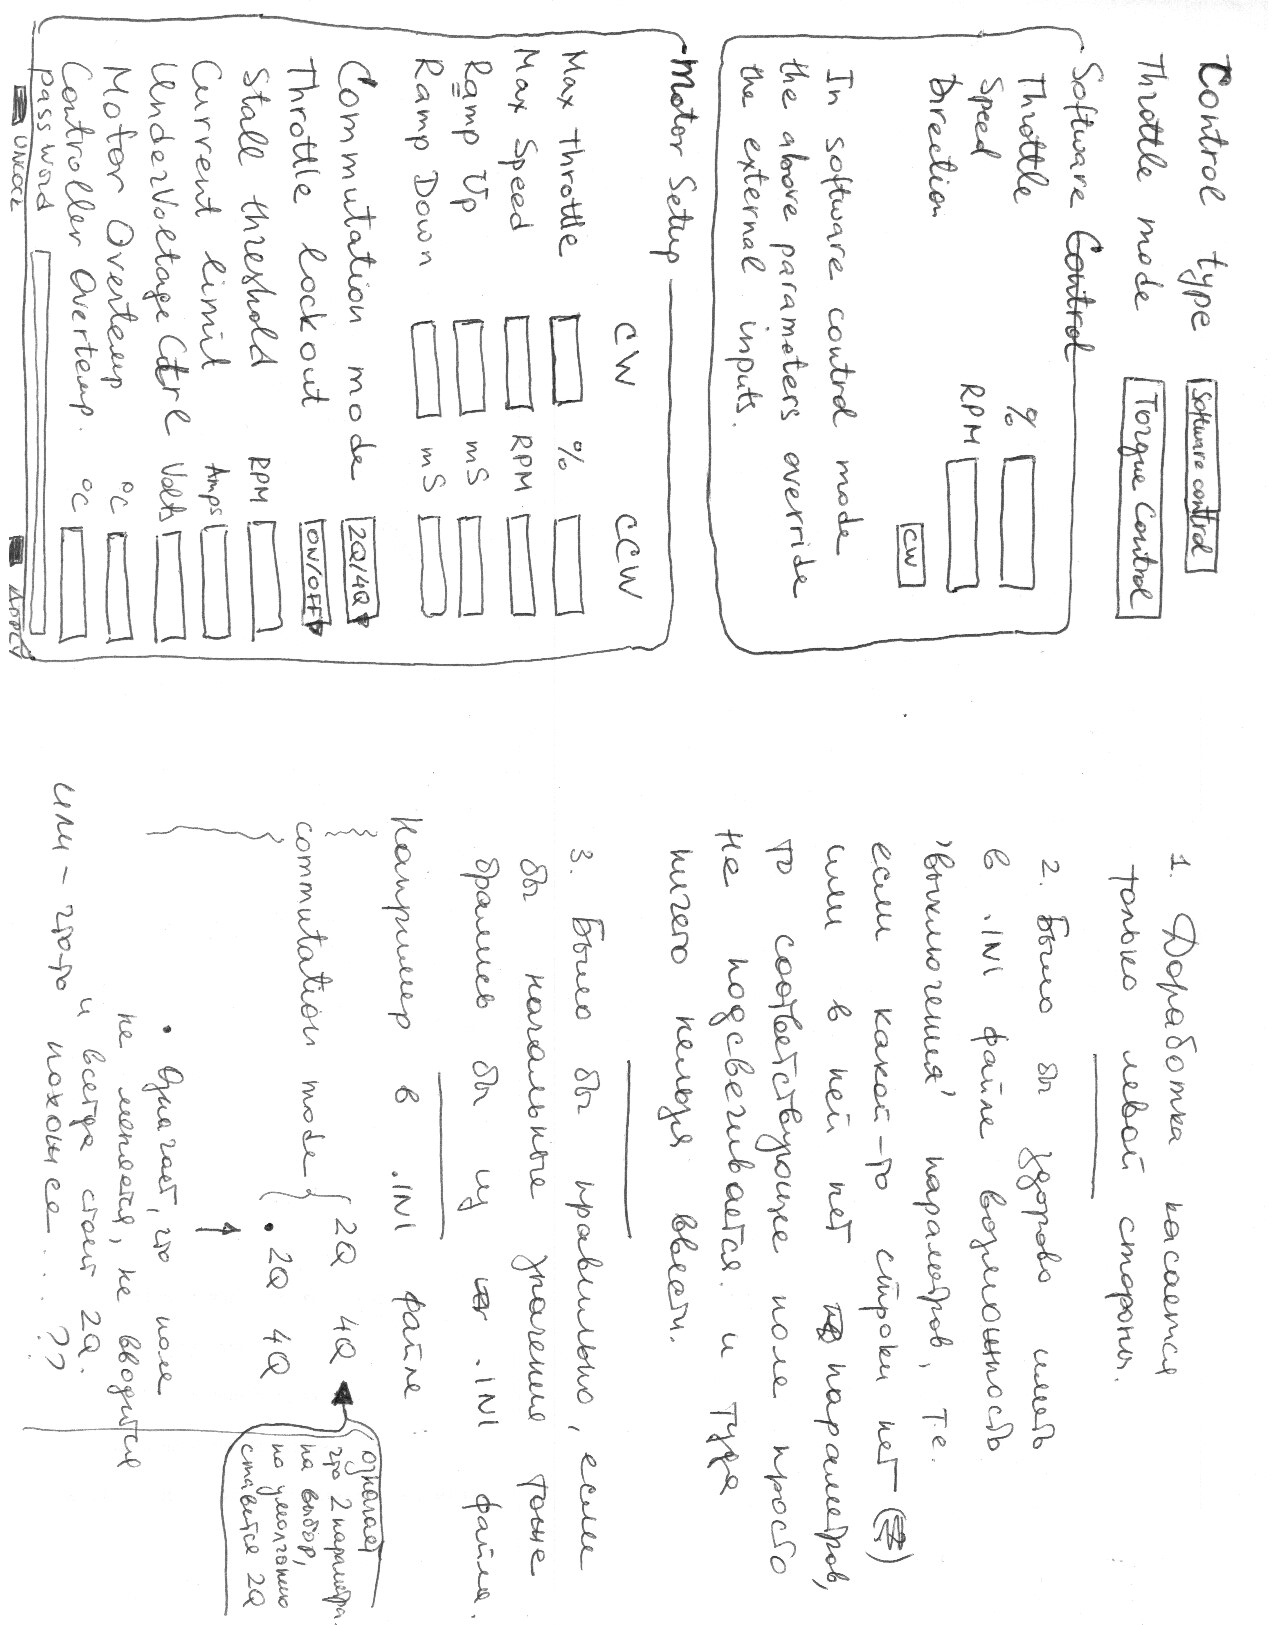 Control type Software control
Throttle mode Torque Control
Software Control
Throttle %
Speed RPM
Direction CW
In software control mode
the above parameters override
the external inputs.
Motor Setup
CW CCW
Max Throttle %
Max Speed RPM
Ramp Up mS
Ramp Down mS
Commutation mode 2Q/4Q
Throttle lockout ON/OFF
Stall threshold RPM
Current limit Amps
UnderVoltage Ctrl Volts
Motor Overtemp °C
Controller Overtemp. °C
password
UNLOCK APPLY
1. Доработка касается
только левой стороны.
2. Было бы здорово иметь
в .INI файле возможность
'выключения' параметров, т.е.
если какой-то строки нет
или в ней нет параметров,
то соответствующие поле просто
не подсвечивается. и туда
ничего нельзя ввести.
3. Было бы правильно, если
бы начальные значения тоже
брались бы из .INI файла.
Например в .INI файле:
commutation mode { 2Q 4Q
{ • 2Q 4Q
означает
что 2 параметра.
на выбор,
по умолчанию
ставится 2Q
• Означает, что поле
не меняется, не вводится
и всегда стоит 2Q.
или - что-то похожее... ??